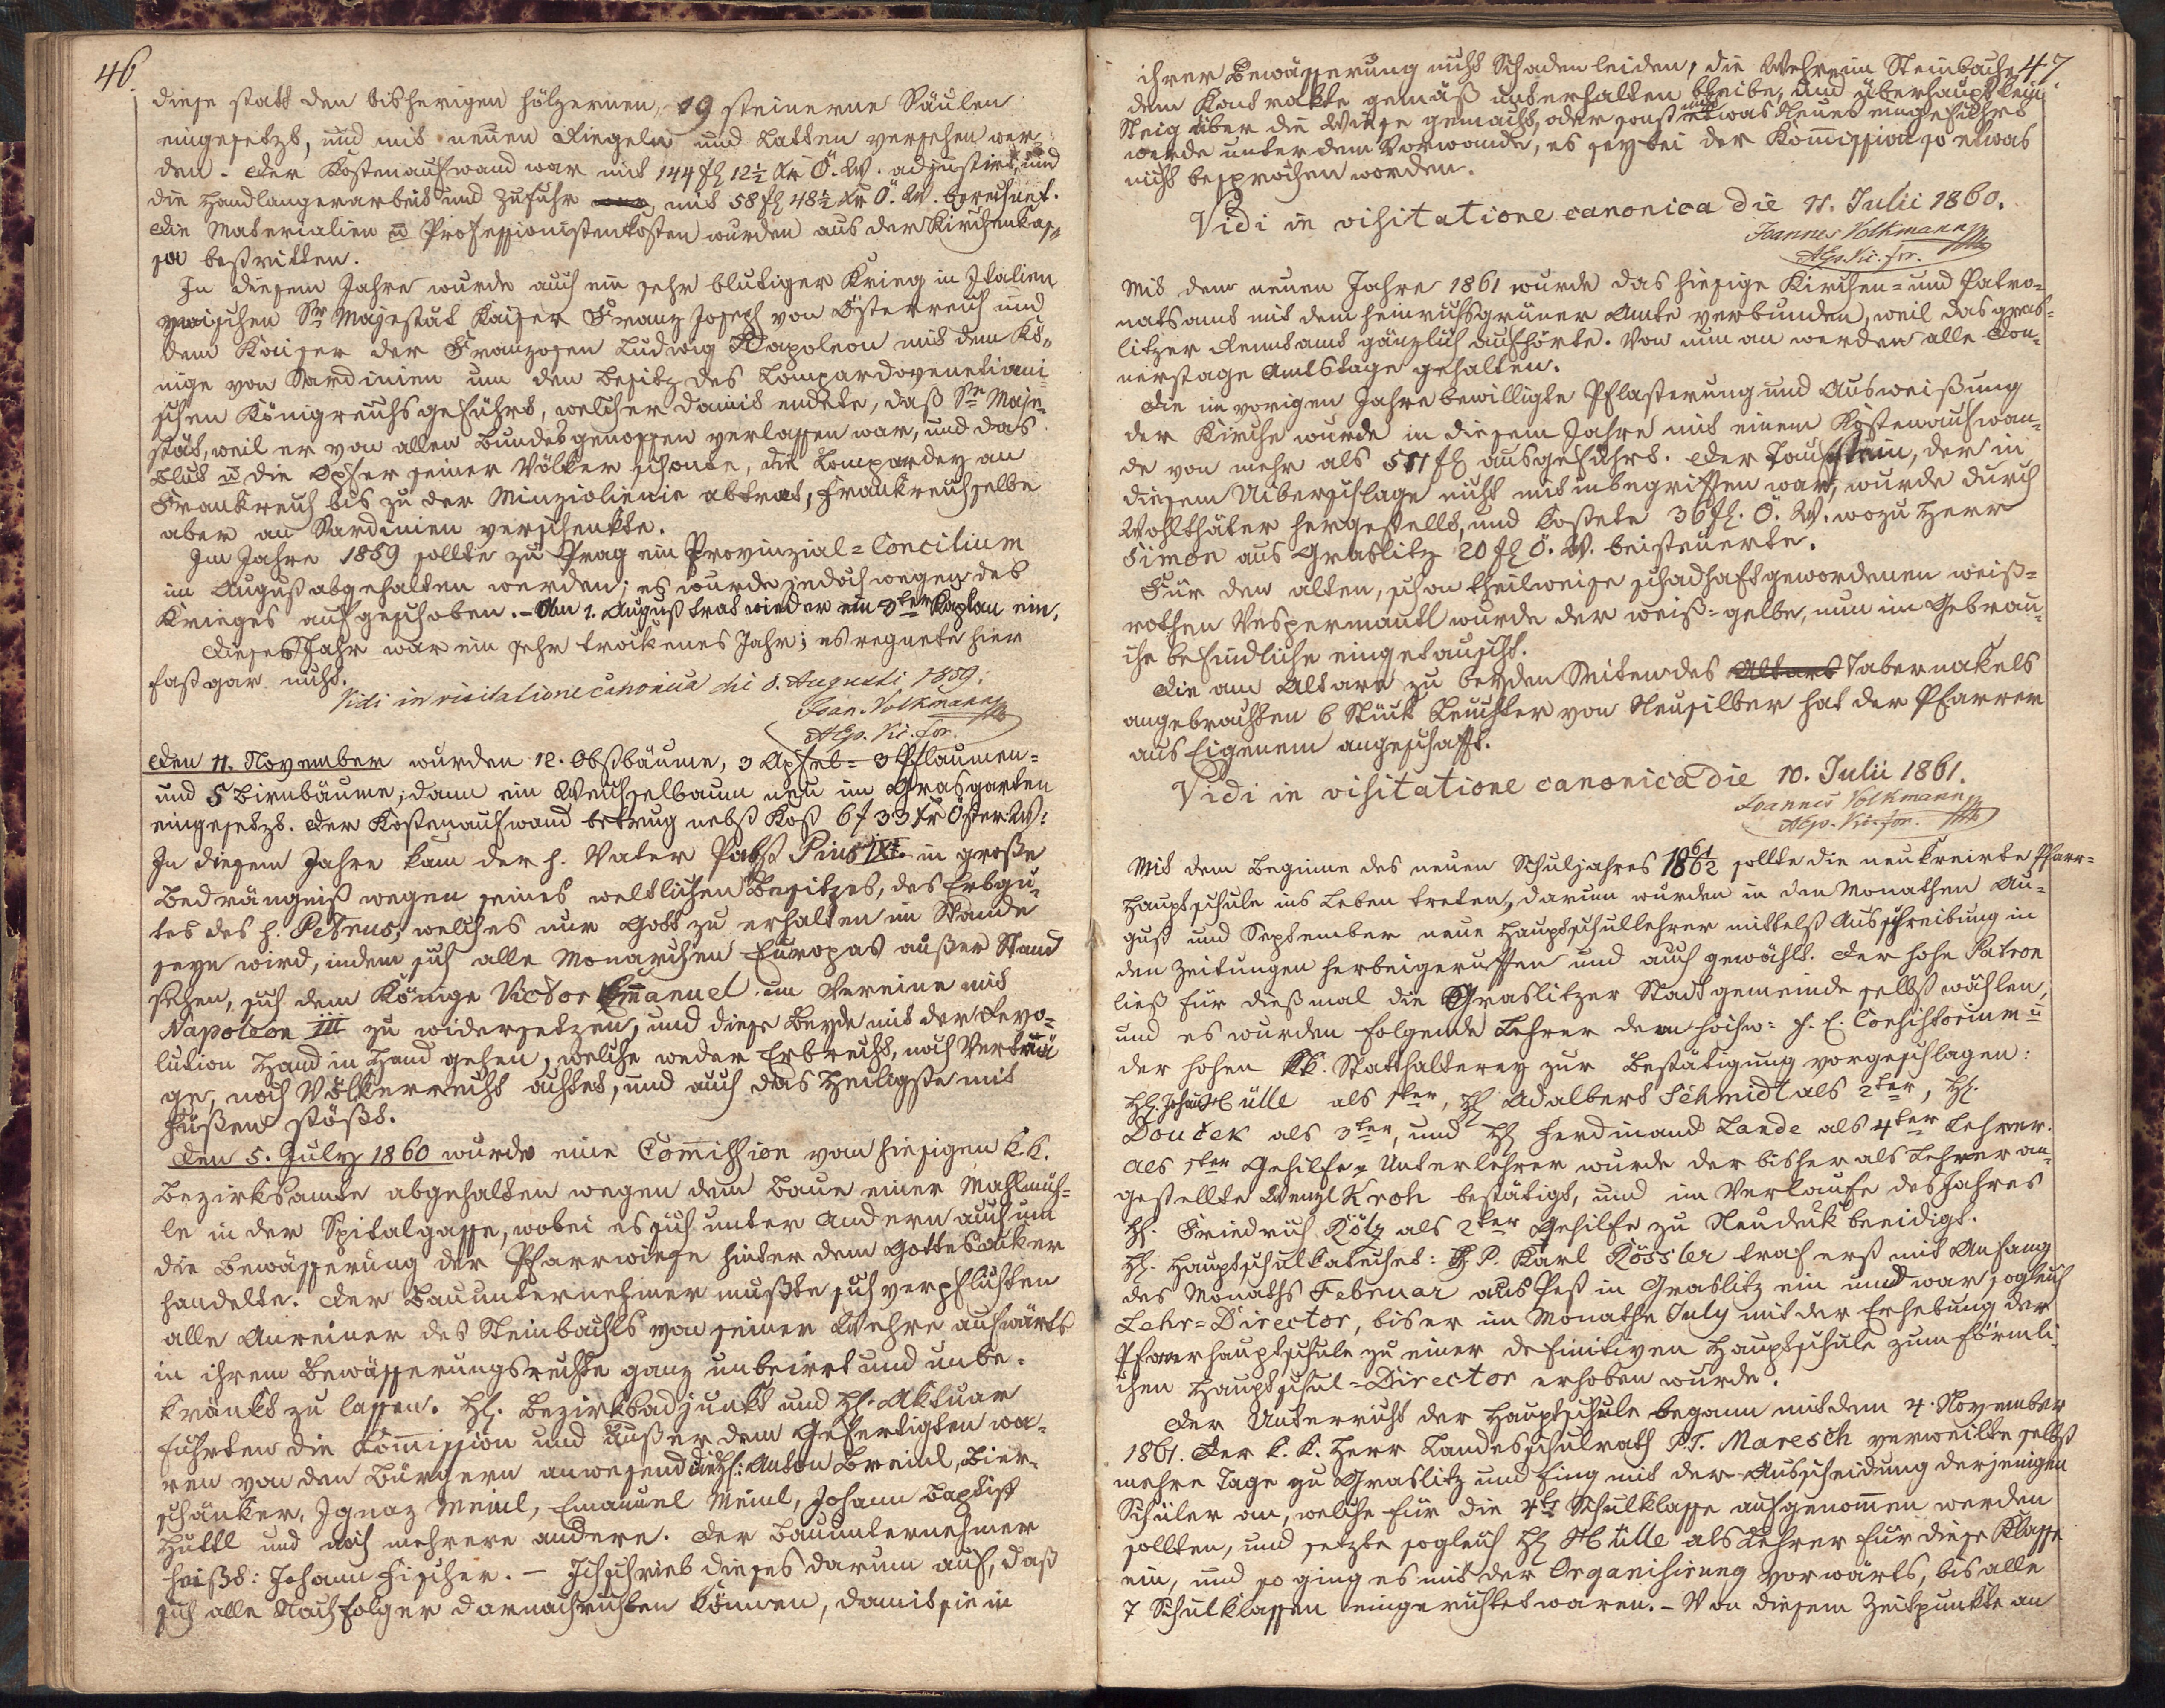 46.
diese statt den bisherigen hölzernen, 19 steinerne Säulen
eingesetzt, und mit neuen Riegeln und Latten versehen wer¬
den. Der Kostenaufwand war mit 144 fl 12½ Kr Ö. W. adjustirt, und
die Handlangerarbeit und Zufuhr mit 58 fl 48½ Kr Ö. W. berechnet.
Die Materialien u Professionistenkosten wurden aus der Kirchenkas¬
sa bestritten.
In diesem Jahre wurde auch ein sehr blutiger Krieg in Italien
zwischen Sr Majestät Kaiser Franz Joseph von Österreich und
dem Kaiser der Franzosen Ludwig Napoleon mit dem Kö¬
nige von Sardinien um den Besitz des Lompardovenetiani¬
schen Königreichs geführt, welcher damit endete, daß Se Maje¬
stät, weil er von allen Bundesgenossen verlassen war, und das
Blut u die Opfer seiner Völker schonte, die Lompardey an
Frankreich bis zu der Minziolienie abtrat, Frankreich selbe
aber an Sardinien verschenkte.
Im Jahre 1859 sollte zu Prag ein Provinzial=Concilium
im August abgehalten werden; es wurde jedoch wegen des
Krieges aufgeschoben. – Am 1. August trat wieder ein 3ter Kaplan ein.
Dieses Jahr war ein sehr trockenes Jahr; es regnete hier
fast gar nicht.
Vidi in visitatione canonica die 8. Augusti 1859.
Joan. Volkmann
AEp. Vic. for.
Den 11. November wurden 12. Obstbäume, 3 Apfel= 3 Pflaumen=
und 5 Birnbäume; dann ein Weichselbaum neu im Grasgarten
eingesetzt. Der Kostenaufwand betrug nebst Kost 6 f 33 Kr Öster. W:
In diesem Jahre kam der h. Vater Pabst Pius IX. in große
Bedrängniß wegen seines weltlichen Besitzes, des Erbgu¬
tes des h. Petrus, welches nur Gott zu erhalten im Stande
seyn wird, indem sich alle Monarchen Europas außer Stand
sehen, sich dem Könige Victor Emanuel im Vereine mit
Napoleon III zu widersetzen, und diese Beyde mit der Revo¬
lution Hand in Hand gehen, welche weder Erbrecht, noch Verträ
ge, noch Völkerrecht achtet, und auch das Heiligste mit
Füßen stößt.
Den 5. July 1860 wurde eine Commission vom hiesigen k.k.
Bezirksamte abgehalten wegen dem Baue einer Mahlmüh¬
le in der Spitalgasse, wobei es sich unter Andern auch um
die Bewässerung der Pfarrwiese hinter dem Gottesacker
handelte. Der Bauunternehmer mußte sich verpflichten
alle Anreiner des Steinbachls von seiner Wehre aufwärts
in ihrem Bewässerungsrechte ganz unbeirrt und unbe¬
kränkt zu lassen. H. Bezirksadjunkt und H. Aktuar
führten die Kommission und außer dem Gefertigten wa¬
ren von den Bürgern anwesend die H: Anton Breinl, Bier¬
schänker, Ignaz Meinl, Emanuel Meinl, Johann Baptist
Hüttl und noch mehrere andere. Der Bauunternehmer
heißt: Johann Fischer. – Ich schrieb dieses darum auf, daß
sich alle Nachfolger darnach richten können, damit sie in
47.
ihrer Bewässerung nicht Schaden leiden, die Wehre im Steinbache
dem Kontrakte gemäß unterhalten bleibe, und überhaupt kein
Steig über die Wiese gemacht, oder sonst etwas Neues eingeführt
werde unter dem Vorwande, es sey bei der Kommission so etwas
nicht besprochen worden.
Vidi in visitatione canonica die 11. Julii 1860.
Joannes Volkmann
AEp. Vic. for.
Mit dem neuen Jahre 1861 wurde das hiesige Kirchen= und Patro¬
natsamt mit dem heinrichsgrüner Amte verbunden, weil das gras¬
litzer Rentamt gänzlich aufhörte. Von nun an werden alle Don¬
nerstage Amtstage gehalten.
Die im vorigen Jahre bewilligte Pflasterung und Ausweißung
der Kirche wurde in diesem Jahre mit einem Kostenaufwan¬
de von mehr als 511 fl ausgeführt. Der Taufstein, der in
diesem Überschlage nicht mit inbegriffen war, wurde durch
Wohlthäter hergestellt, und kostete 36 fl. Ö. W. wozu Herr
Simon aus Graslitz 20 fl Ö. W. beisteuerte.
Für den alten, schon theilweise schadhaft gewordenen weiß=
rothen Vespermantl wurde der weiß=gelbe, nun im Gebrau¬
che befindliche eingetauscht.
Die am Altare zu beyden Seiten des Altars Tabernakels
angebrachten 6 Stück Leuchter von Neusilber hat der Pfarrer
aus Eigenem angeschafft.
Vidi in visitatione canonica die 10. Julii 1861.
Joannes Volkmann
AEp. Vic. for.
Mit dem Beginne des neuen Schuljahres 1861/62 sollte die neu kreirte Pfarr=
hauptschule ins Leben treten, darum wurden in den Monathen Au¬
gust und September neue Hauptschullehrer mittelst Ausschreibung in
den Zeitungen herbeigeruffen und auch gewählt. Der hohe Patron
ließ für dießmal die Graslitzer Stadtgemeinde selbst wählen,
und es wurden folgende Lehrer dem hochw: f. E. Consistorium u
der hohen kk. Statthalterey zur Bestätigung vorgeschlagen:
H. Hülle als 1ter, H Adalbert Schmidt als 2ter, H.
Douček als 3ter, und H Ferdinand Lande als 4ter Lehrer.
Als 1ter Gehilfe u Unterlehrer wurde der bisher als Lehrer an¬
gestellte Wenzl Kroh bestätigt, und im Verlaufe des Jahres
H. Friedrich Kölz als 2ter Gehilfe zu Neudek beeidigt.
H. Hauptschulkatechet: H P. Karl Kössler traf erst mit Anfang
des Monaths Februar aus Pest in Graslitz ein und war sogleich
Lehr=Director, bis er im Monathe July mit der Erhebung der
Pfarrhauptschule zu einer definitiven Hauptschule zum förmli¬
chen Hauptschul=Director erhoben wurde.
Der Unterricht der Hauptschule begann mit dem 4. November
1861. Der k. k. Herr Landesschulrath PT. Maresch verweilte selbst
mehre Tage zu Graslitz und fing mit der Ausscheidung derjenigen
Schüler an, welche für die 4te Schulklasse aufgenommen werden
sollten, und setzte sogleich H Hülle als Lehrer für diese Klasse
ein, und so ging es mit der Organisirung vorwärts, bis alle
7 Schulklassen eingerichtet waren. – Von diesem Zeitpunkte an